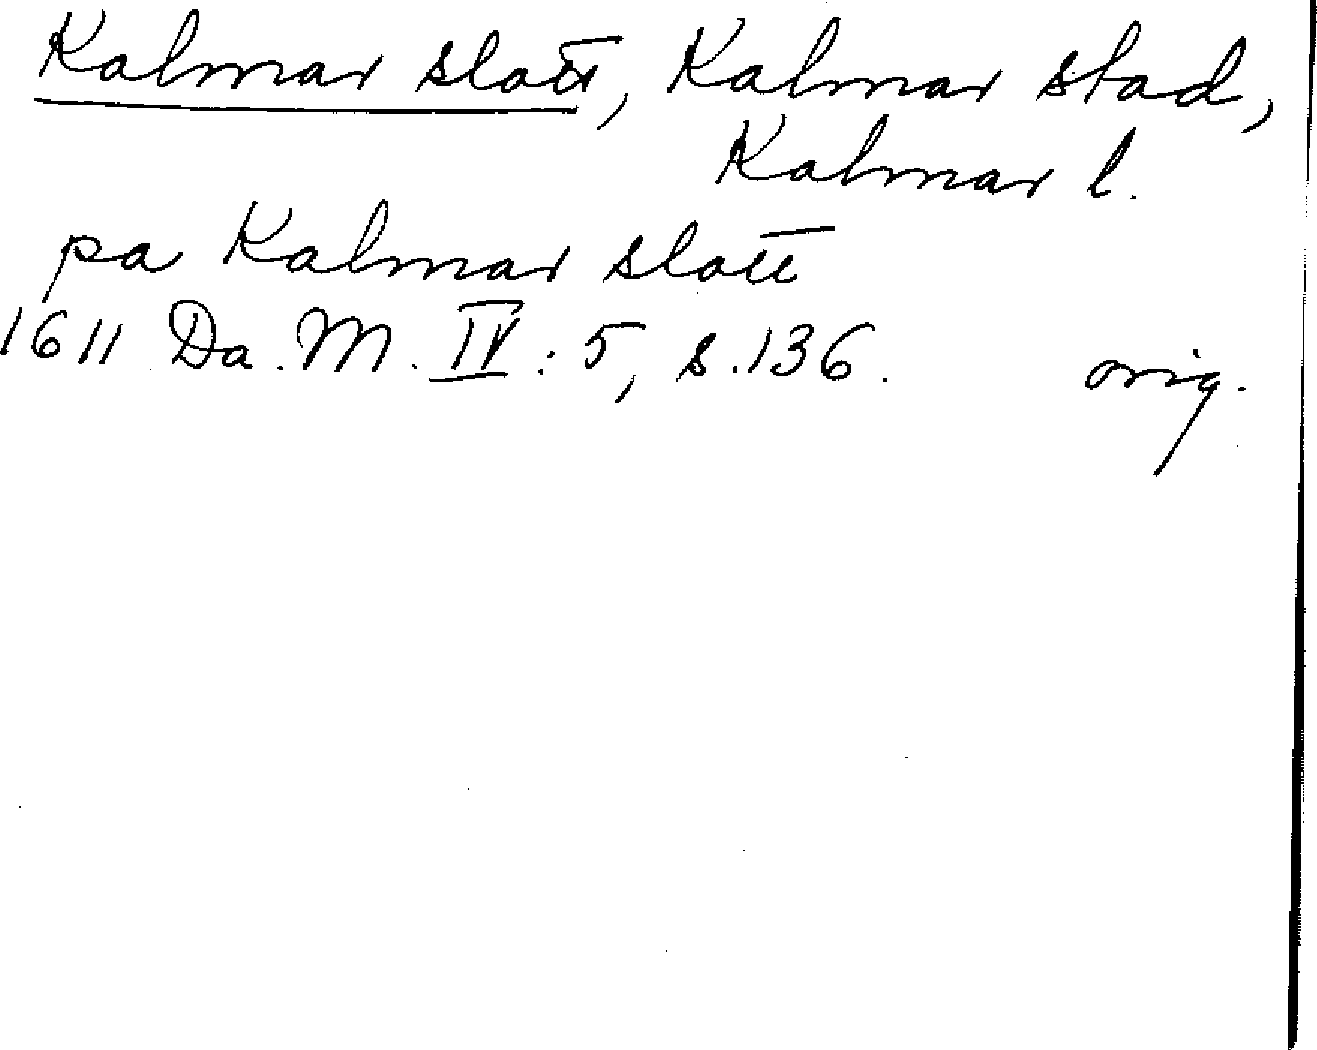 Kalmar slott, Kalmar stad,
Kalmar l.
pa Kalmar slott
1611 Da. M. IV: 5, s. 136. orig.